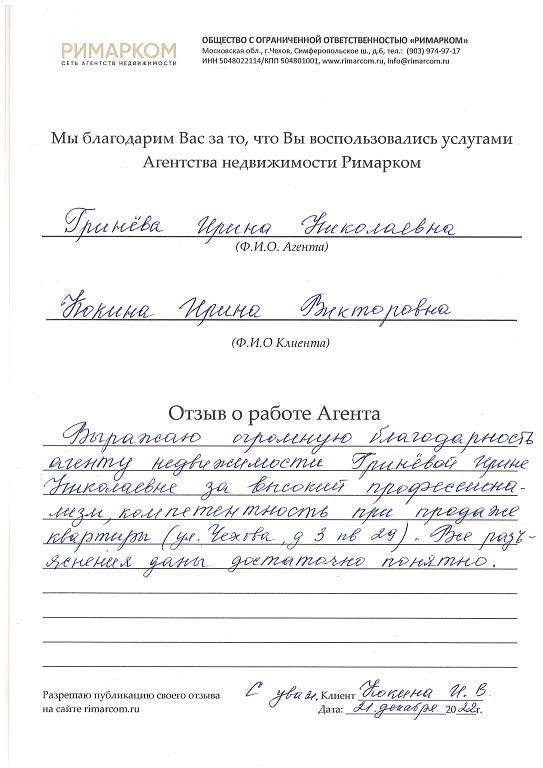 РИМАРКОМ
СЕТЬ АГЕНТСТВ НЕДВИЖИМОСТИ
ОБЩЕСТВО С ОГРАНИЧЕННОЙ ОТВЕТСТВЕННОСТЬЮ «РИМАРКОМ»
Московская обл., г.Чехов, Симферопольское ш., д.6, тел.: (903) 974-97-17
ИНН 5048022114/КПП 504801001, www.rimarcom.ru, info@rimarcom.ru
Мы благодарим Вас за то, что Вы воспользовались услугами
Агентства недвижимости Римарком
Гринёва Ирина Николаевна
(Ф.И.О. Агента)
Кокина Ирина Викторовна
(Ф.И.О Клиента)
Отзыв о работе Агента
Выражаю огромную благодарность
агенту недвижимости Гринёвой Ирине
Николаевне за высокий профессиона-
лизм, компетентность при продаже
квартиры (ул. Чехова, д 3 кв 29). Все разъ-
яснения даны достаточно понятно.
Разрешаю публикацию своего отзыва
на сайте rimarcom.ru
С уваж. Клиент Кокина И. В.
Дата: 21 декабря 2022г.